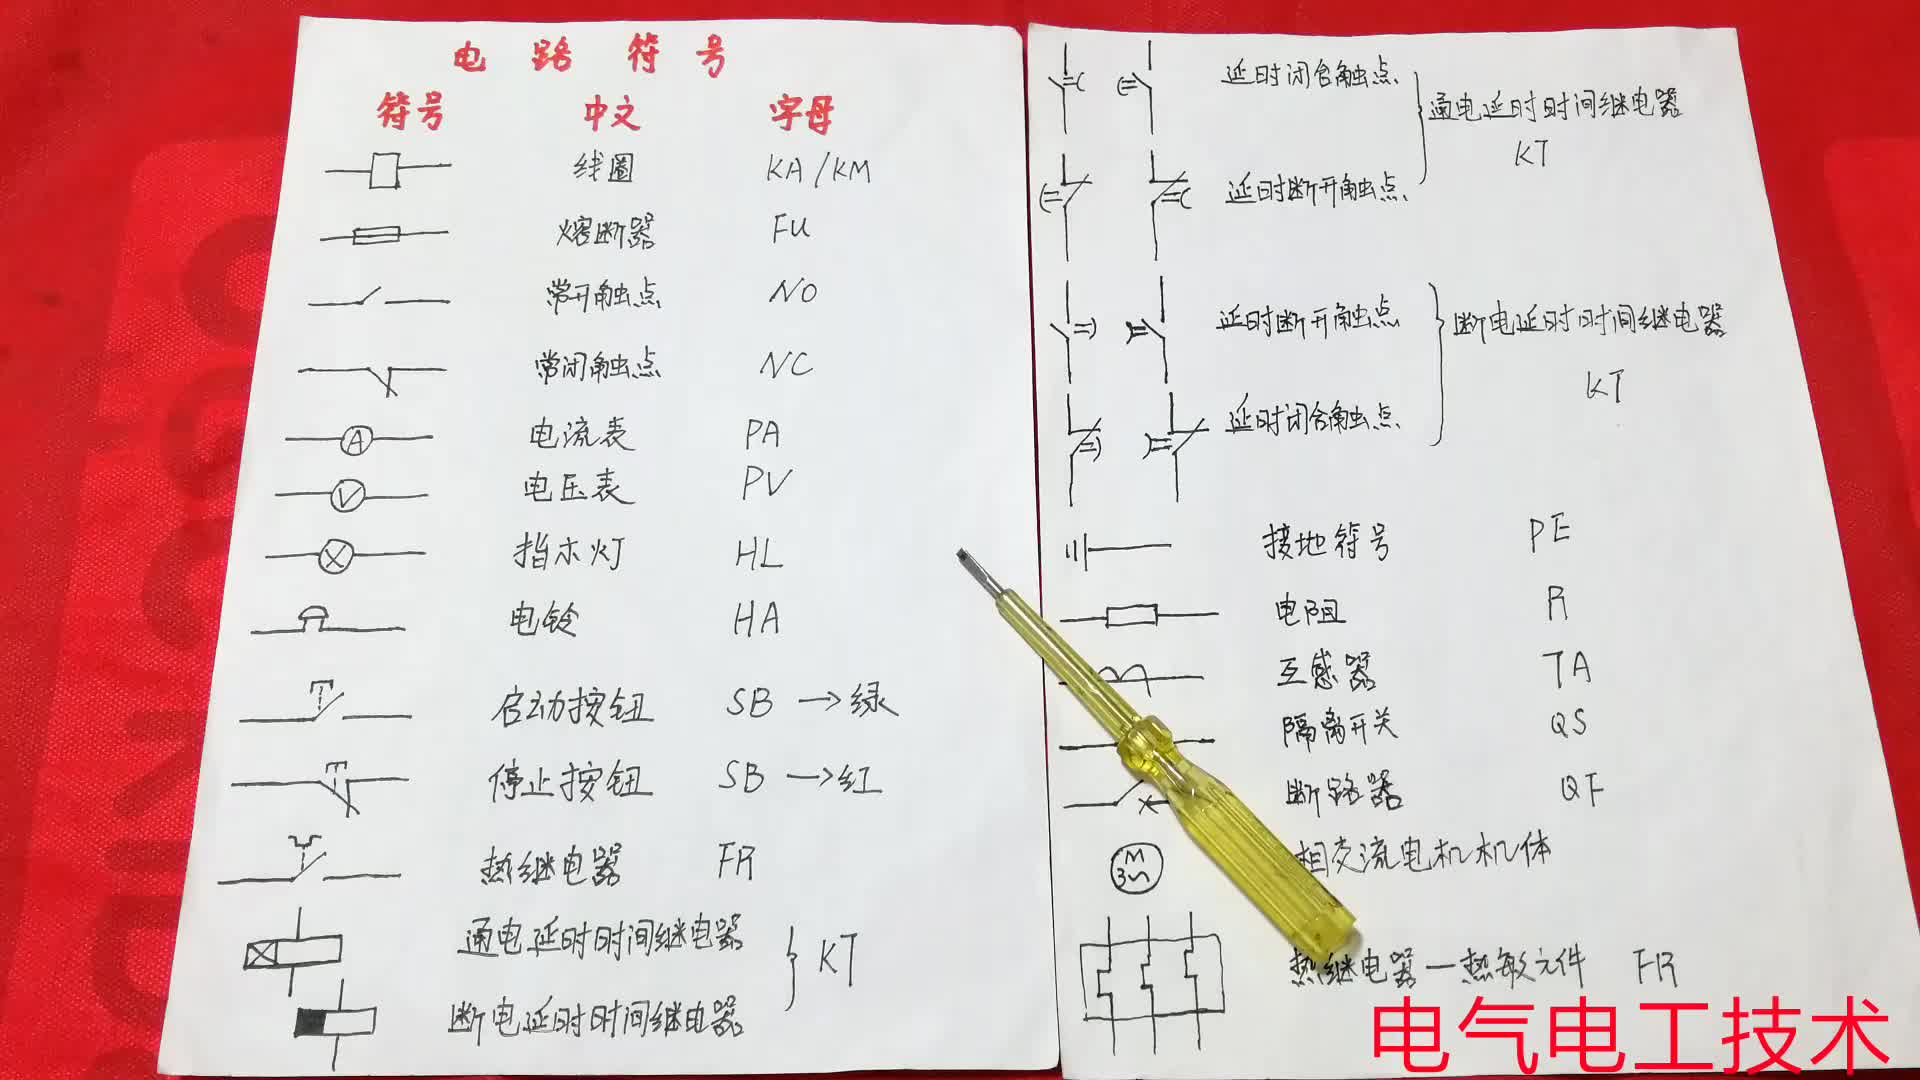 电路符号
符号 中文 字母
线圈 KA/KM
熔断器 FU
常开触点 NO
常闭触点 NC
电流表 PA
A
电压表 PV
V
指示灯 HL
电铃 HA
启动按钮 SB→绿
停止按钮 SB→红
热继电器 FR
通电延时时间继电器
KT
断电延时时间继电器
延时闭合触点.
通电延时时间继电器
KT
延时断开触点.
延时断开触点
断电延时时间继电器
KT
延时闭合触点.
接地符号 PE
电阻 R
互感器 TA
隔离开关 QS
断路器 QF
M
3~
相交流电机机体
热继电器—热敏元件 FR
电气电工技术